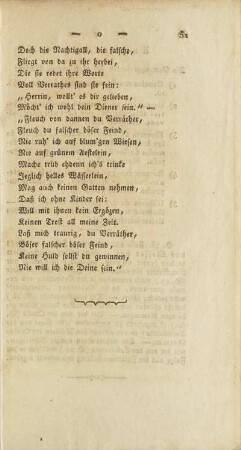 — 9 —
Doch die Nachtigall, die falsche,
Fliegt von da zu ihr herbei,
Die sie redet ihre Worte
Voll Verrathes sind sie fein:
„Herrin, wollt' es dir gelieben,
Möcht' ich wohl dein Diener sein.“ —
„Fleuch von dannen du Verräther,
Fleuch du falscher böser Feind,
Nie ruh' ich auf blum'gen Wiesen,
Nie auf grünem Aestelein,
Mache trüb ehdenn ich's trinke
Jeglich helles Wässerlein,
Mag auch keinen Gatten nehmen,
Daß ich ohne Kinder sei:
Will mit ihnen kein Ergözen,
Keinen Trost all meine Zeit.
Laß mich traurig, du Verräther,
Böser falscher böser Feind,
Keine Huld sollst du gewinnen,
Nie will ich die Deine sein.“